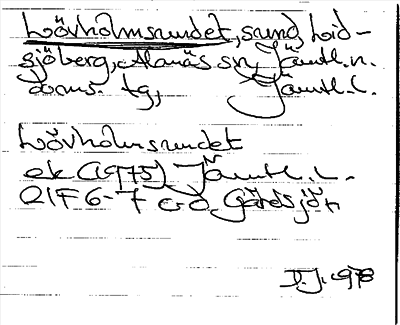 Lövholmsrundet, sund vid
sjöberg, Alanäs sn, Jämtl. n.
doms. tg, Jämtl. l.
Lövholmsrundet
ek (1975) Jämtl. l.
21F 6-7 c-d Gårdsjön
1978